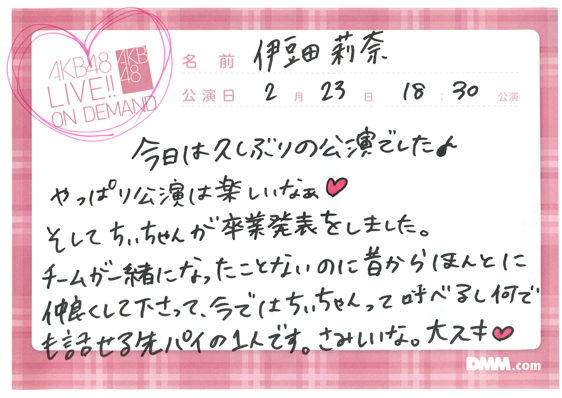 AKB48
LIVE!!
ON DEMAND
AKB
48
名前 伊豆田 莉奈
公演日 2月 23日 18:30 公演
今日は久しぶりの公演でした♪
やっぱり公演は楽しいなぁ♥
そしてちぃちゃんが卒業発表をしました。
チームが一緒になったことないのに昔からほんとに
仲良くして下さって、今ではちぃちゃんって呼べるし何で
も話せる先パイの1人です。さみしいな。大スキ♥
DMM.com